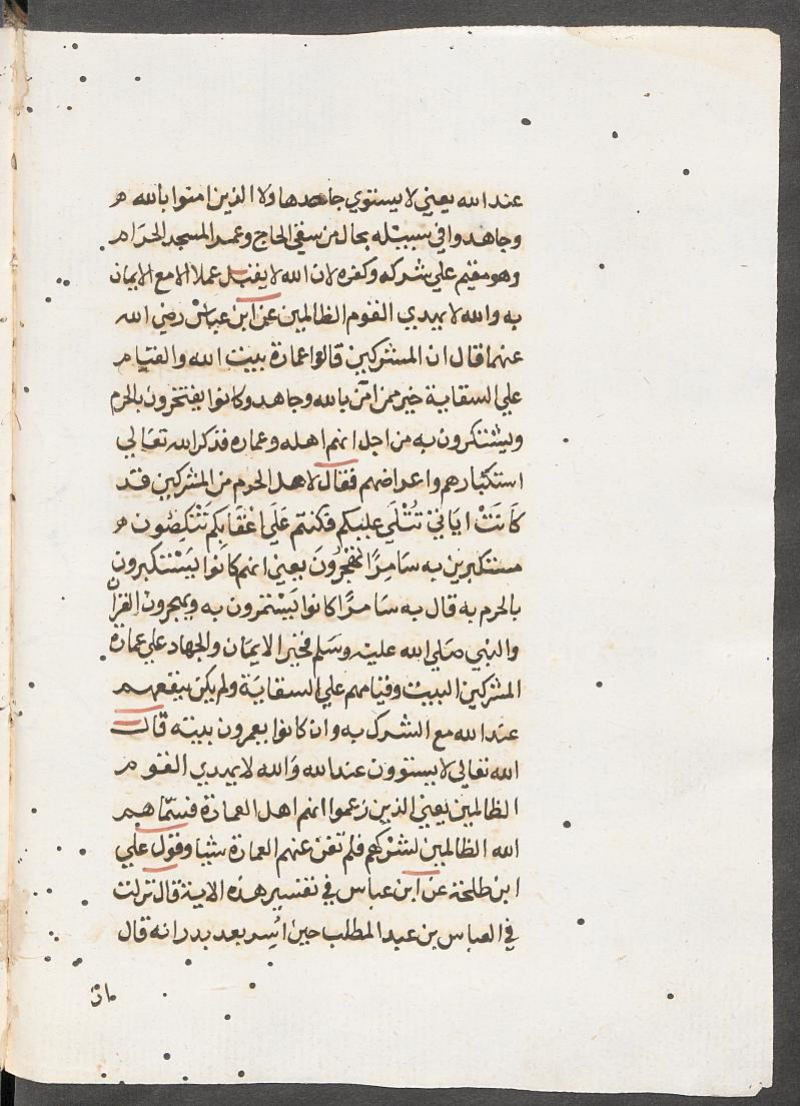 عند الله يعني لا يستوي جاحدها ولا الذين امنوا بالله
وجاهدوا في سبيله بحال من سقي الحاج وعمر المسجد الحرام
وهو مقيم علي شركه وكفره لان الله لا يقبل عملا الا مع الايمان
به والله لا يهدي القوم الظالمين عن ابن عباس رضي الله
عنهما قال ان المشركين قالوا عمارة بيت الله والقيام
علي السقاية خير ممن امن بالله وجاهد وكانوا يفتخرون بالحرم
ويستكبرون به من اجل انهم اهله وعماره فذكر الله تعالي
استكبارهم واعراضهم فقال لاهل الحرم من المشركين قد
كَانَتْ ايَاتي تُتْلَي عليكم فكنتم عَلَي اعْقَابِكم تَنْكِصُون
مستكبرين به سَامِرًا تهجُرُونَ يعني انهم كانوا يَسْتكبرون
بالحرم به قال به سَامِرًا كانوا يَسْمرون به ويهجرون القران
والنبي صَلي الله عليه وسَلم فخير الايمَان والجهاد علي عمارة
المشركين البيت وقيامهم علي السقايَة ولم يكن ينفعهم
عند الله مع الشرك به وان كانوا يعمرون بيته قال
الله تعالي لا يستوون عند الله وَالله لا يهدي القوم
الظالمين يعني الذين زعموا انهم اهل العمارة فسمّاهم
الله الظالمين لشركهم فلم تغن عنهم العمارة شيا وقول علي
ابن طلحة عن ابن عباس في تفسير هذه الاية قال نزلت
في العباس بن عبد المطلب حين اُسِر بعد بدر انه قال